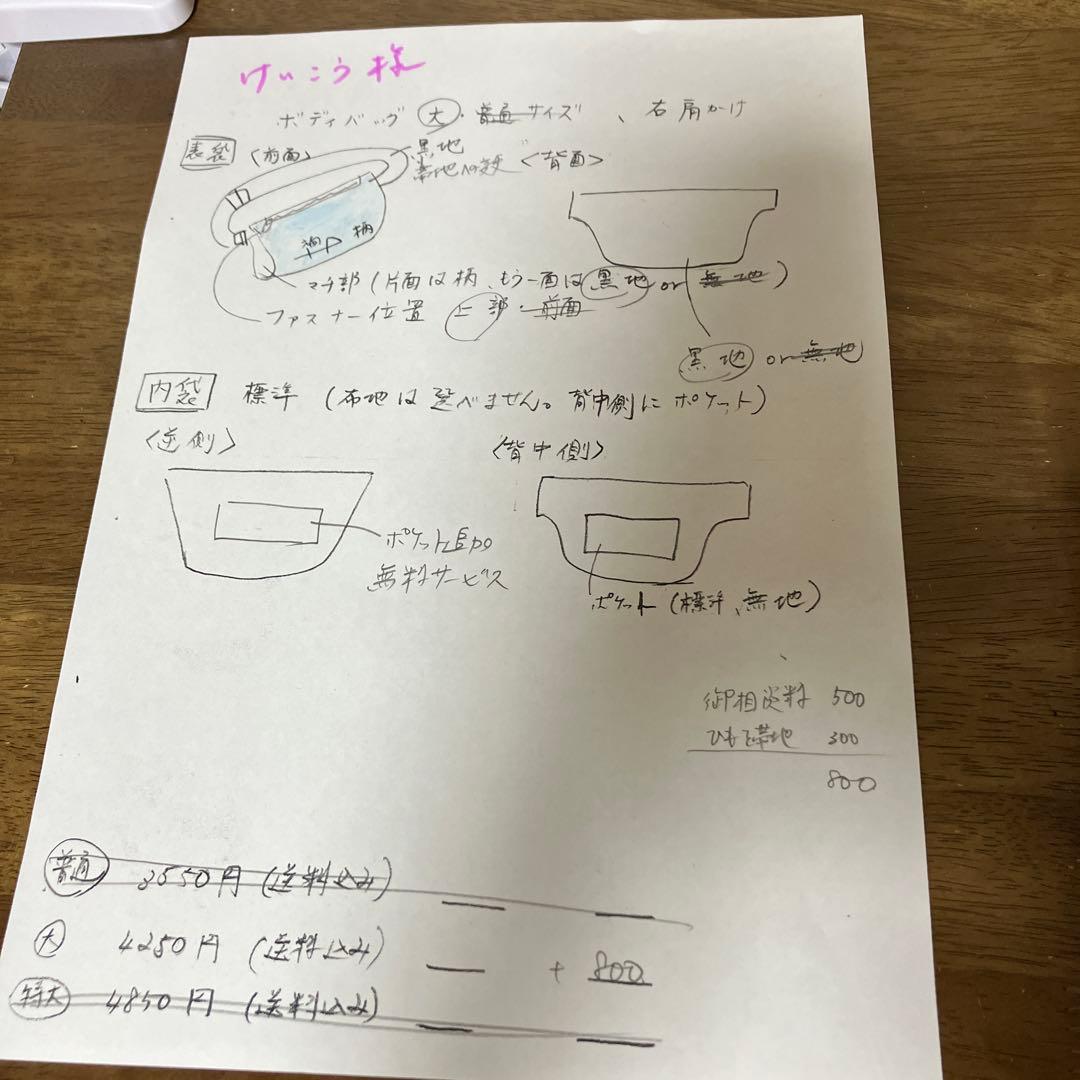 けいこう 様
ボディバッグ 大・普通サイズ、右肩かけ
表袋 〈前面〉
黒地
〈背面〉
柄
マチ部(片面は柄、もう一面は黒地 or 無地)
ファスナー位置 上部・前面
黒地 or 無地
内袋 標準 (布地は選べません。背中側にポケット)
〈逆側〉
〈背中側〉
ポケット追加
無料サービス
ポケット(標準、無地)
御相談料 500
300
800
普通 3550円(送料込み)
大 4250円(送料込み) + 800
特大 4850円(送料込み)